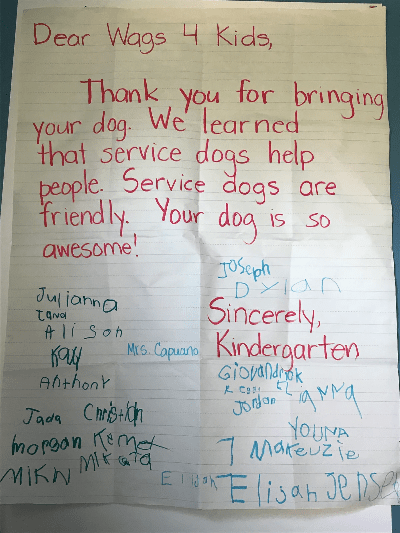 Dear Wags 4 Kids,
Thank you for bringing
your dog. We learned
that service dogs help
people. Service dogs are
friendly. Your dog is so
awesome!
Joseph
Dylan
Julianna
Sincerely,
Alison
Mrs. Capuano
Kindergarten
Anthony
Jordan
Jada Christian
morgan
Makeuzie
MIKN
Elijah
Elijah Jensen